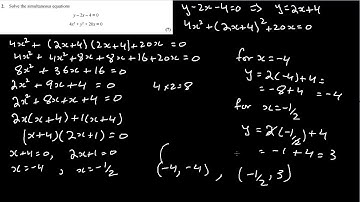 2. Solve the simultaneous equations
y – 2x – 4 = 0
4x² + y² + 20x = 0
(7)
y-2x-4=0 => y=2x+4
4x²+(2x+4)²+20x=0
4x² + (2x+4)(2x+4)+20x = 0
4x² + 4x²+8x+8x+16+20x=0
8x² + 36x +16 = 0
2x² + 9x +4 = 0
4x2=8
2x² + 8x + x + 4 = 0
2x(x+4)+1(x+4)
(x+4)(2x+1)=0
x+4=0, 2x+1=0
x=-4, x=-1/2
for x=-4
y=2(-4)+4
=-8+4=-4
for x=-1/2
y=2(-1/2)+4
=-1+4=3
(-4,-4), (-1/2,3)